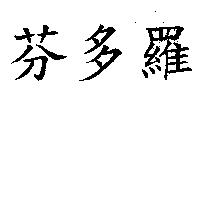 芬多羅